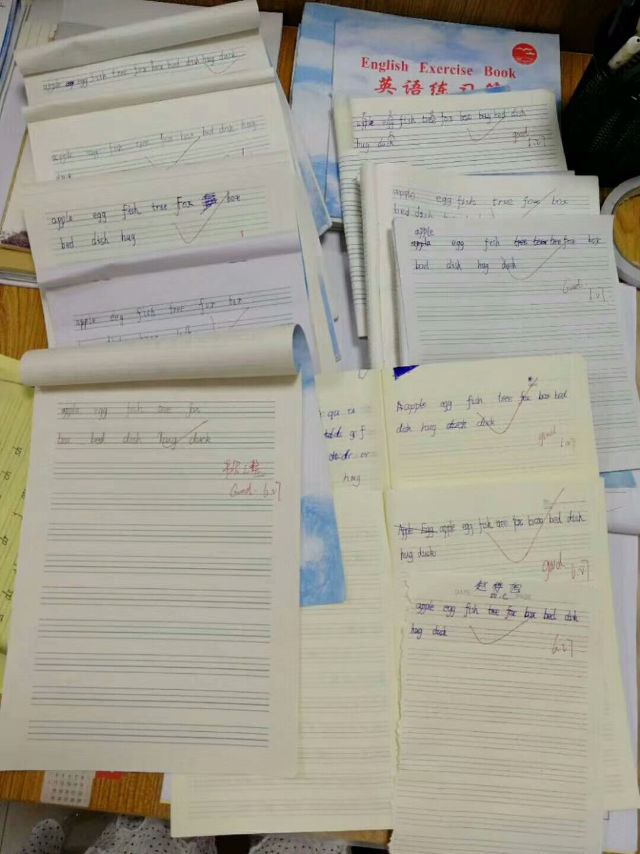 apple egg fish tree fox box bed dish hug duck
apple egg fish tree fox box bed dish hug
duck
apple egg fish tree fox box
bed dish hug
apple egg fish tree fox box
apple egg fish tree fox
box bed dish hug duck
Good 6.27
English Exercise Book
英语练习簿
apple egg fish tree fox box hug bed dish
hug duck
good
6.27
apple egg fish tree fox box
bed dish hug
apple
apple egg fish tree fox box
bed dish hug duck
Good
6.27
apple egg fish tree fox box bed
dish hug duck
good
6.27
hug
Apple Egg apple egg fish tree fox box bed dish
hug duck
good 6.27
apple egg fish tree fox box bed dish
hug duck
6.27